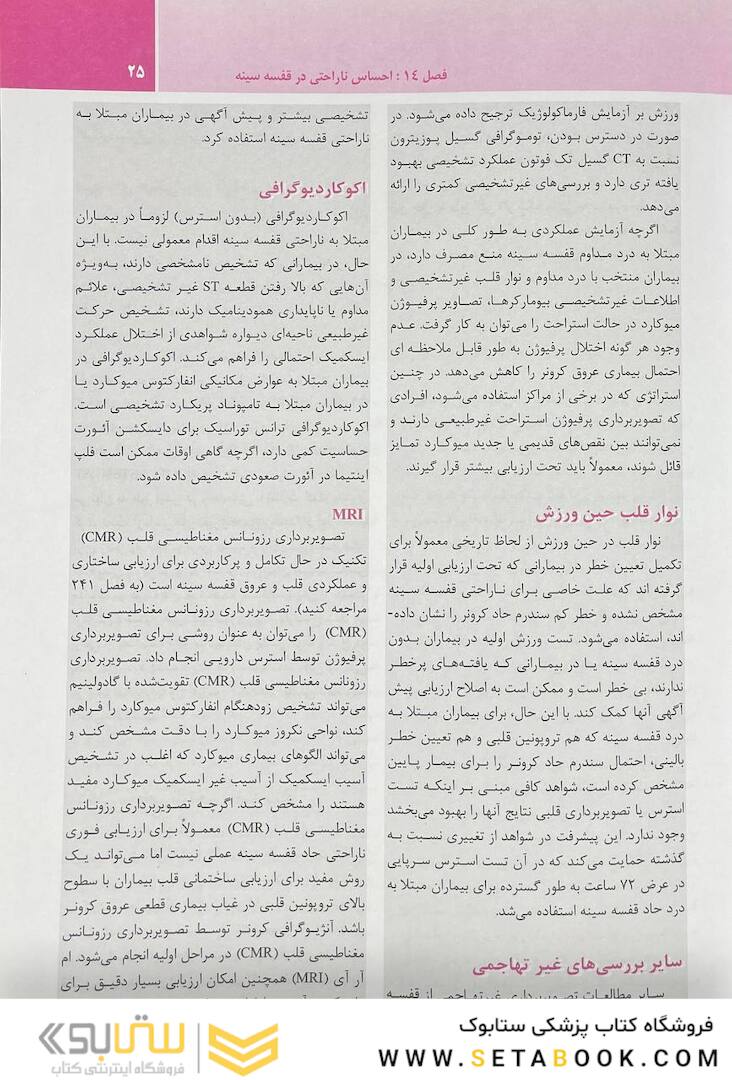 فصل ۱۴ : احساس ناراحتی در قفسه سینه
۲۵
ورزش بر آزمایش فارماکولوژیک ترجیح داده می‌شود. در
صورت در دسترس بودن، توموگرافی گسیل پوزیترون
نسبت به CT گسیل تک فوتون عملکرد تشخیصی بهبود
یافته تری دارد و بررسی‌های غیرتشخیصی کمتری را ارائه
می‌دهد.
اگرچه آزمایش عملکردی به طور کلی در بیماران
مبتلا به درد مداوم قفسه سینه منع مصرف دارد، در
بیماران منتخب با درد مداوم و نوار قلب غیرتشخیصی و
اطلاعات غیرتشخیصی بیومارکرها، تصاویر پرفیوژن
میوکارد در حالت استراحت را می‌توان به کار گرفت. عدم
وجود هر گونه اختلال پرفیوژن به طور قابل ملاحظه ای
احتمال بیماری عروق کرونر را کاهش می‌دهد. در چنین
استراتژی که در برخی از مراکز استفاده می‌شود، افرادی
که تصویربرداری پرفیوژن استراحت غیرطبیعی دارند و
نمی‌توانند بین نقص‌های قدیمی یا جدید میوکارد تمایز
قائل شوند، معمولاً باید تحت ارزیابی بیشتر قرار گیرند.
نوار قلب حین ورزش
نوار قلب در حین ورزش از لحاظ تاریخی معمولاً برای
تکمیل تعیین خطر در بیمارانی که تحت ارزیابی اولیه قرار
گرفته اند که علت خاصی برای ناراحتی قفسه سینه
مشخص نشده و خطر کم سندرم حاد کرونر را نشان داده-
اند، استفاده می‌شود. تست ورزش اولیه در بیماران بدون
درد قفسه سینه یا در بیمارانی که یافته‌های پرخطر
ندارند، بی خطر است و ممکن است به اصلاح ارزیابی پیش
آگهی آنها کمک کند. با این حال، برای بیماران مبتلا به
درد قفسه سینه که هم تروپونین قلبی و هم تعیین خطر
بالینی، احتمال سندرم حاد کرونر را برای بیمار پایین
مشخص کرده است، شواهد کافی مبنی بر اینکه تست
استرس یا تصویربرداری قلبی نتایج آنها را بهبود می‌بخشد
وجود ندارد. این پیشرفت در شواهد از تغییری نسبت به
گذشته حمایت می‌کند که در آن تست استرس سرپایی
در عرض ۷۲ ساعت به طور گسترده برای بیماران مبتلا به
درد حاد قفسه سینه استفاده می‌شد.
سایر بررسی‌های غیر تهاجمی
سایر مطالعات تصویربرداری غیرتهاجمی از قفسه
تشخیصی بیشتر و پیش آگهی در بیماران مبتلا به
ناراحتی قفسه سینه استفاده کرد.
اکوکاردیوگرافی
اکوکاردیوگرافی (بدون استرس) لزوماً در بیماران
مبتلا به ناراحتی قفسه سینه اقدام معمولی نیست. با این
حال، در بیمارانی که تشخیص نامشخصی دارند، به‌ویژه
آن‌هایی که بالا رفتن قطعه ST غیر تشخیصی، علائم
مداوم یا ناپایداری همودینامیک دارند، تشخیص حرکت
غیرطبیعی ناحیه‌ای دیواره شواهدی از اختلال عملکرد
ایسکمیک احتمالی را فراهم می‌کند. اکوکاردیوگرافی در
بیماران مبتلا به عوارض مکانیکی انفارکتوس میوکارد یا
در بیماران مبتلا به تامپوناد پریکارد تشخیصی است.
اکوکاردیوگرافی ترانس توراسیک برای دایسکشن آئورت
حساسیت کمی دارد، اگرچه گاهی اوقات ممکن است فلپ
اینتیما در آئورت صعودی تشخیص داده شود.
MRI
تصویربرداری رزونانس مغناطیسی قلب (CMR)
تکنیک در حال تکامل و پرکاربردی برای ارزیابی ساختاری
و عملکردی قلب و عروق قفسه سینه است (به فصل ۲۴۱
مراجعه کنید). تصویربرداری رزونانس مغناطیسی قلب
(CMR) را می‌توان به عنوان روشی برای تصویربرداری
پرفیوژن توسط استرس دارویی انجام داد. تصویربرداری
رزونانس مغناطیسی قلب (CMR) تقویت‌شده با گادولینیم
می‌تواند تشخیص زودهنگام انفارکتوس میوکارد را فراهم
کند، نواحی نکروز میوکارد را با دقت مشخص کند و
می‌تواند الگوهای بیماری میوکارد که اغلب در تشخیص
آسیب ایسکمیک از آسیب غیر ایسکمیک میوکارد مفید
هستند را مشخص کند. اگرچه تصویربرداری رزونانس
مغناطیسی قلب (CMR) معمولاً برای ارزیابی فوری
ناراحتی حاد قفسه سینه عملی نیست اما می‌تواند یک
روش مفید برای ارزیابی ساختمانی قلب بیماران با سطوح
بالای تروپونین قلبی در غیاب بیماری قطعی عروق کرونر
باشد. آنژیوگرافی کرونر توسط تصویربرداری رزونانس
مغناطیسی قلب (CMR) در مراحل اولیه انجام می‌شود. ام
آر آی (MRI) همچنین امکان ارزیابی بسیار دقیق برای
فروشگاه کتاب پزشکی ستابوک
WWW.SETABOOK.COM
ستابوک
فروشگاه اینترنتی کتاب